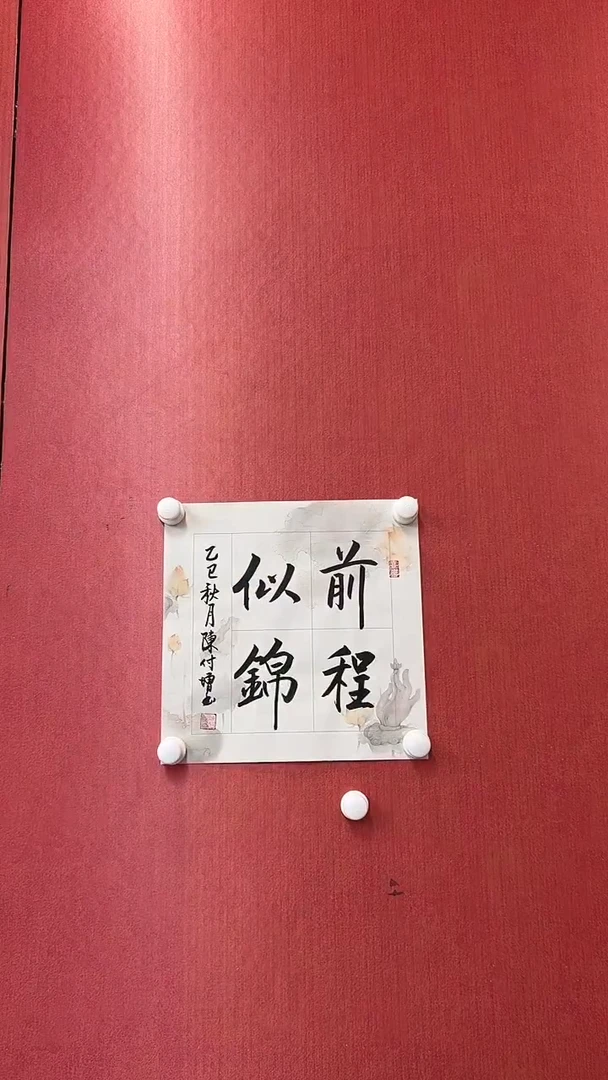 前程
似錦
乙巳秋月陳付增书